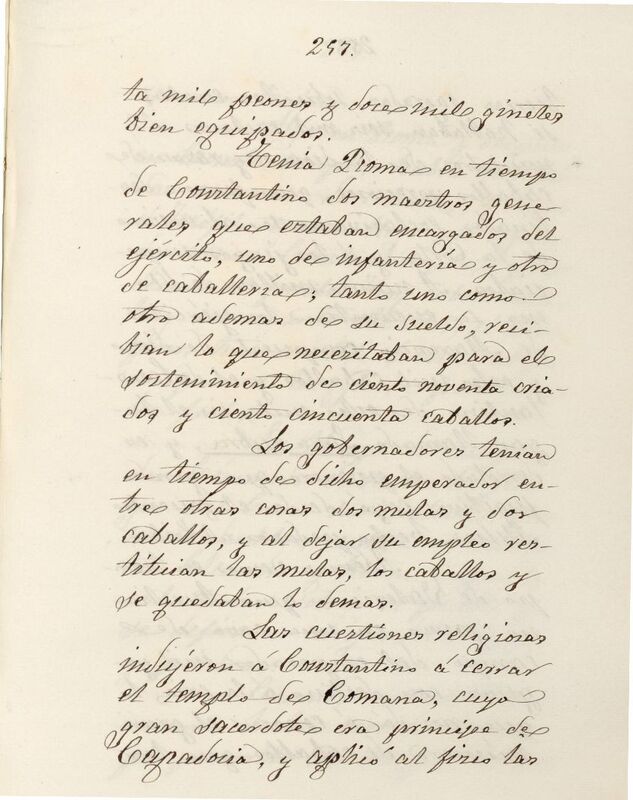 257.
ta mil peones y doce mil ginetes
bien equipados.
Tenia Roma en tiempo
de Constantino dos maestros gene
rales que estaban encargados del
ejército, uno de infantería y otro
de caballería; tanto uno como
otro ademas de su sueldo, reci-
bian lo que necesitaban para el
sostenimiento de ciento noventa cria-
dos y ciento cincuenta caballos.
Los gobernadores tenian
en tiempo de dicho emperador en-
tre otras cosas dos mulas y dos
caballos, y al dejar su empleo res-
tituian las mulas, los caballos y
se quedaban lo demas.
Las cuestiones religiosas
indujeron á Constantino á cerrar
el templo de Comana, cuyo
gran sacerdote era principe de
Capadocia, y aplicó al fisco las